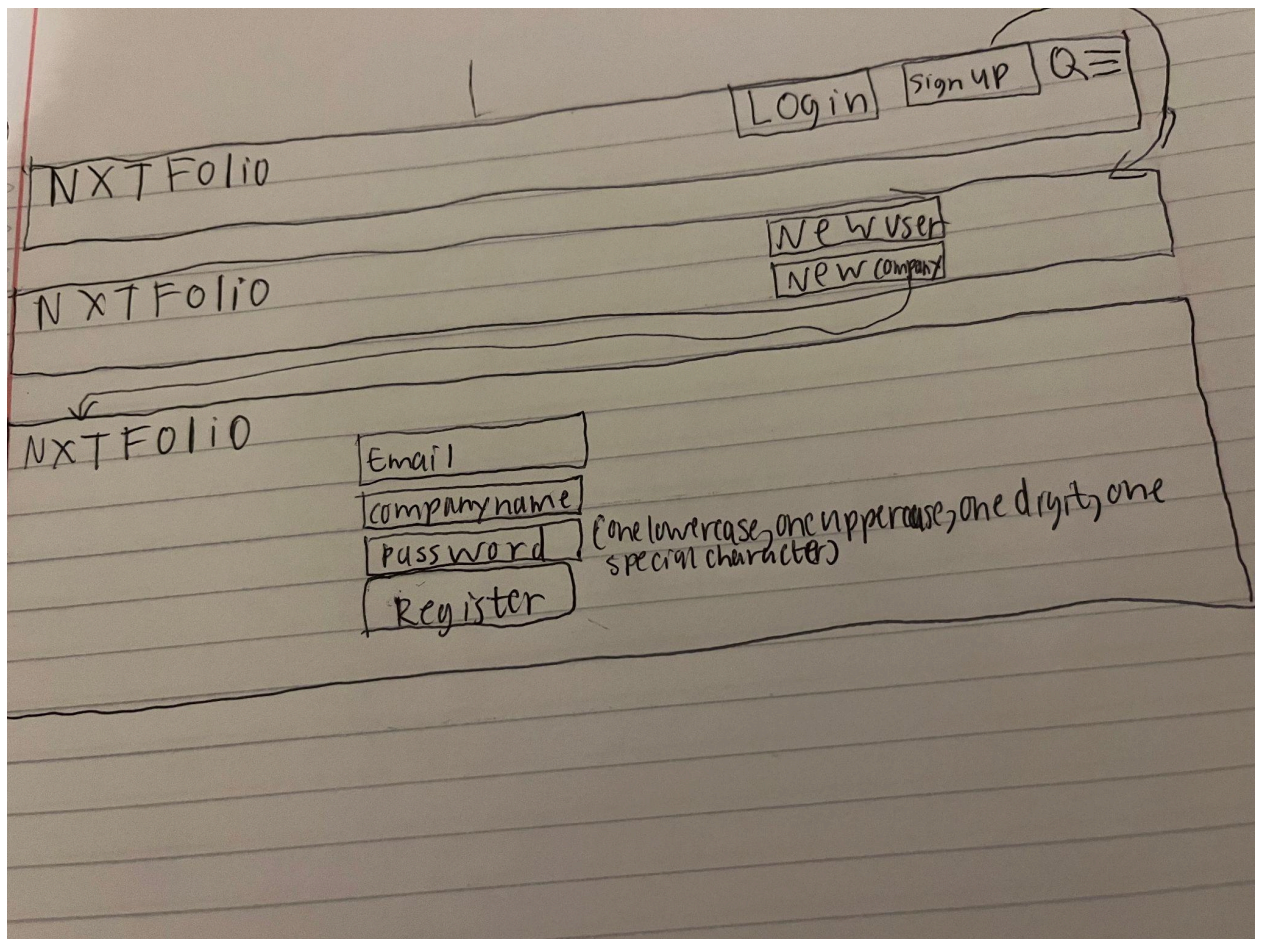 Login sign up
NXTFolio
New user
New company
NXTFolio
NXTFolio
Email
companyname
password (one lowercase, one uppercase, one digit, one
special character)
Register